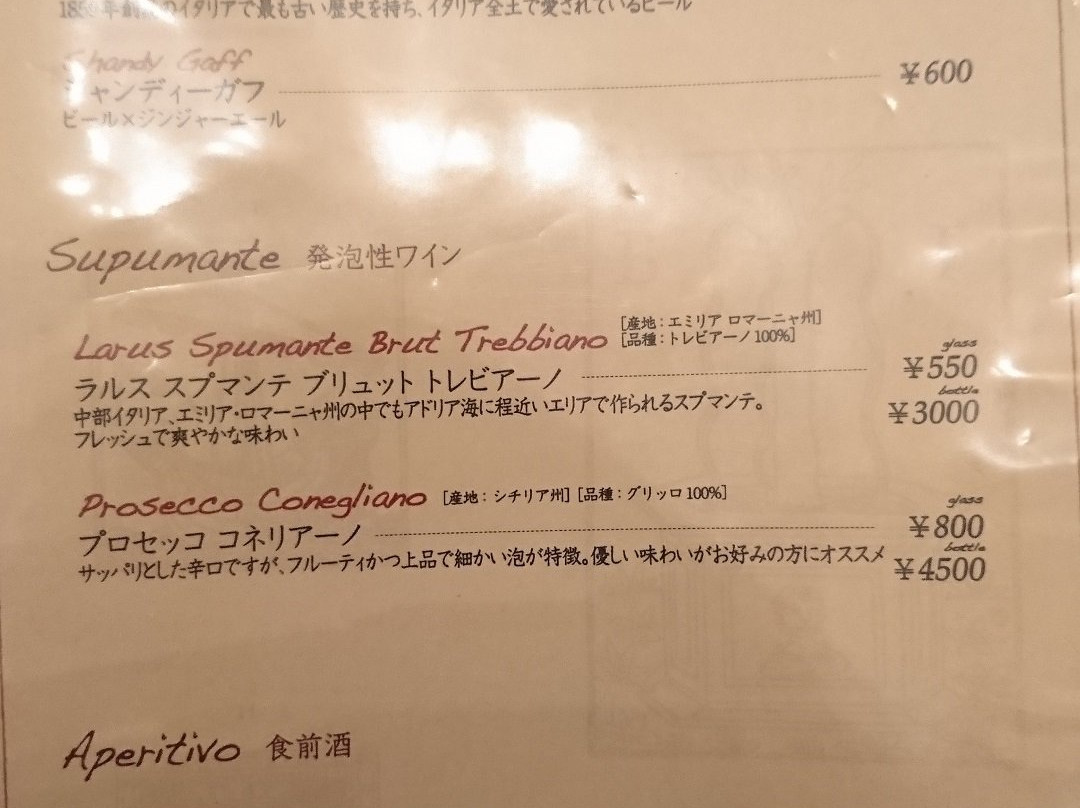 年創業のイタリアで最も古い歴史を持ち、イタリア全土で愛されているビール
Shandy Gaff
シャンディーガフ ¥600
ビール×ジンジャーエール
Supumante 発泡性ワイン
Larus Spumante Brut Trebbiano [産地:エミリア ロマーニャ州]
[品種:トレビアーノ100%]
glass
ラルス スプマンテ ブリュット トレビアーノ ¥550
bottle
中部イタリア、エミリア・ロマーニャ州の中でもアドリア海に程近いエリアで作られるスプマンテ。 ¥3000
フレッシュで爽やかな味わい
Prosecco Conegliano [産地:シチリア州] [品種:グリッロ100%]
glass
プロセッコ コネリアーノ ¥800
bottle
サッパリとした辛口ですが、フルーティかつ上品で細かい泡が特徴。優しい味わいがお好みの方にオススメ ¥4500
Aperitivo 食前酒